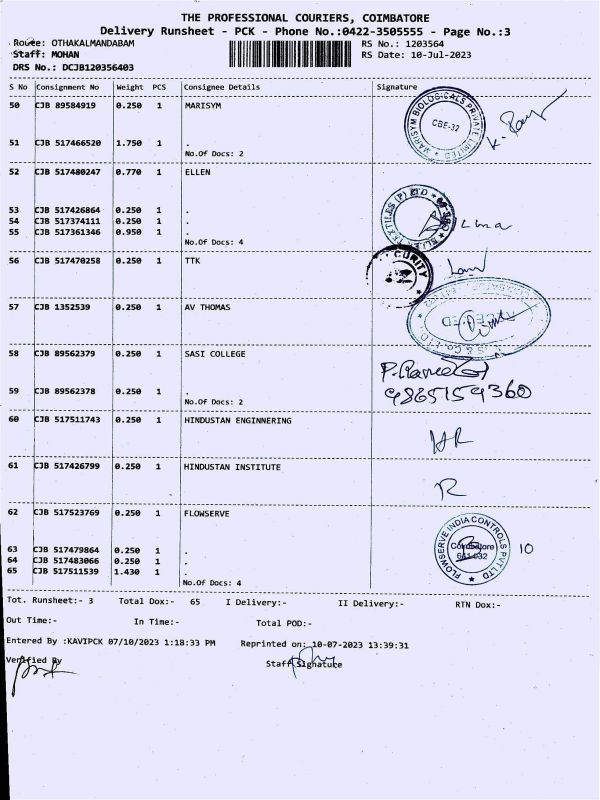 THE PROFESSIONAL COURIERS, COIMBATORE
Delivery Runsheet - PCK - Phone No.:0422-3505555 - Page No.:3
Route: OTHAKALMANDABAM
Staff: MOHAN
DRS No.: DCJB120356403
RS No.: 1203564
RS Date: 10-Jul-2023
S No Consignment No Weight PCS Consignee Details Signature
50 CJB 89584919 0.250 1 MARISYM
MARISYM BIOLOGICALS PRIVATE LIMITED
CBE-32
51 CJB 517466520 1.750 1 .
No.Of Docs: 2
52 CJB 517480247 0.770 1 ELLEN
53 CJB 517426864 0.250 1 .
54 CJB 517374111 0.250 1 .
55 CJB 517361346 0.950 1 .
No.Of Docs: 4
56 CJB 517470258 0.250 1 TTK
57 CJB 1352539 0.250 1 AV THOMAS
58 CJB 89562379 0.250 1 SASI COLLEGE
59 CJB 89562378 0.250 1 .
9865159360
No.Of Docs: 2
60 CJB 517511743 0.250 1 HINDUSTAN ENGINNERING
HR
61 CJB 517426799 0.250 1 HINDUSTAN INSTITUTE
R
62 CJB 517523769 0.250 1 FLOWSERVE
FLOWSERVE INDIA CONTROLS PVT LTD
Coimbatore
641 032
10
63 CJB 517479864 0.250 1 .
64 CJB 517483066 0.250 1 .
65 CJB 517511539 1.430 1 .
No.Of Docs: 4
Tot. Runsheet:- 3 Total Dox:- 65 I Delivery:- II Delivery:- RTN Dox:-
Out Time:- In Time:- Total POD:-
Entered By :KAVIPCK 07/10/2023 1:18:33 PM Reprinted on: 10-07-2023 13:39:31
Verified By Staff Signature